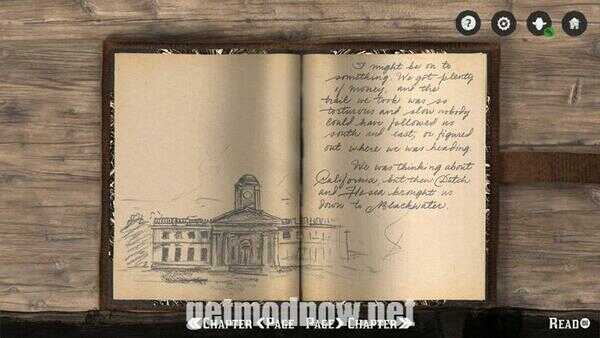 I might be on to
something. We got plenty
of money, and the
trail we took was so
torturous and slow nobody
could have followed us
south and east, or figured
out where we was heading.
We was thinking about
California but then Dutch
and Hosea brought us
down to Blackwater.
getmodnow.net
CHAPTER PAGE PAGE CHAPTER READ